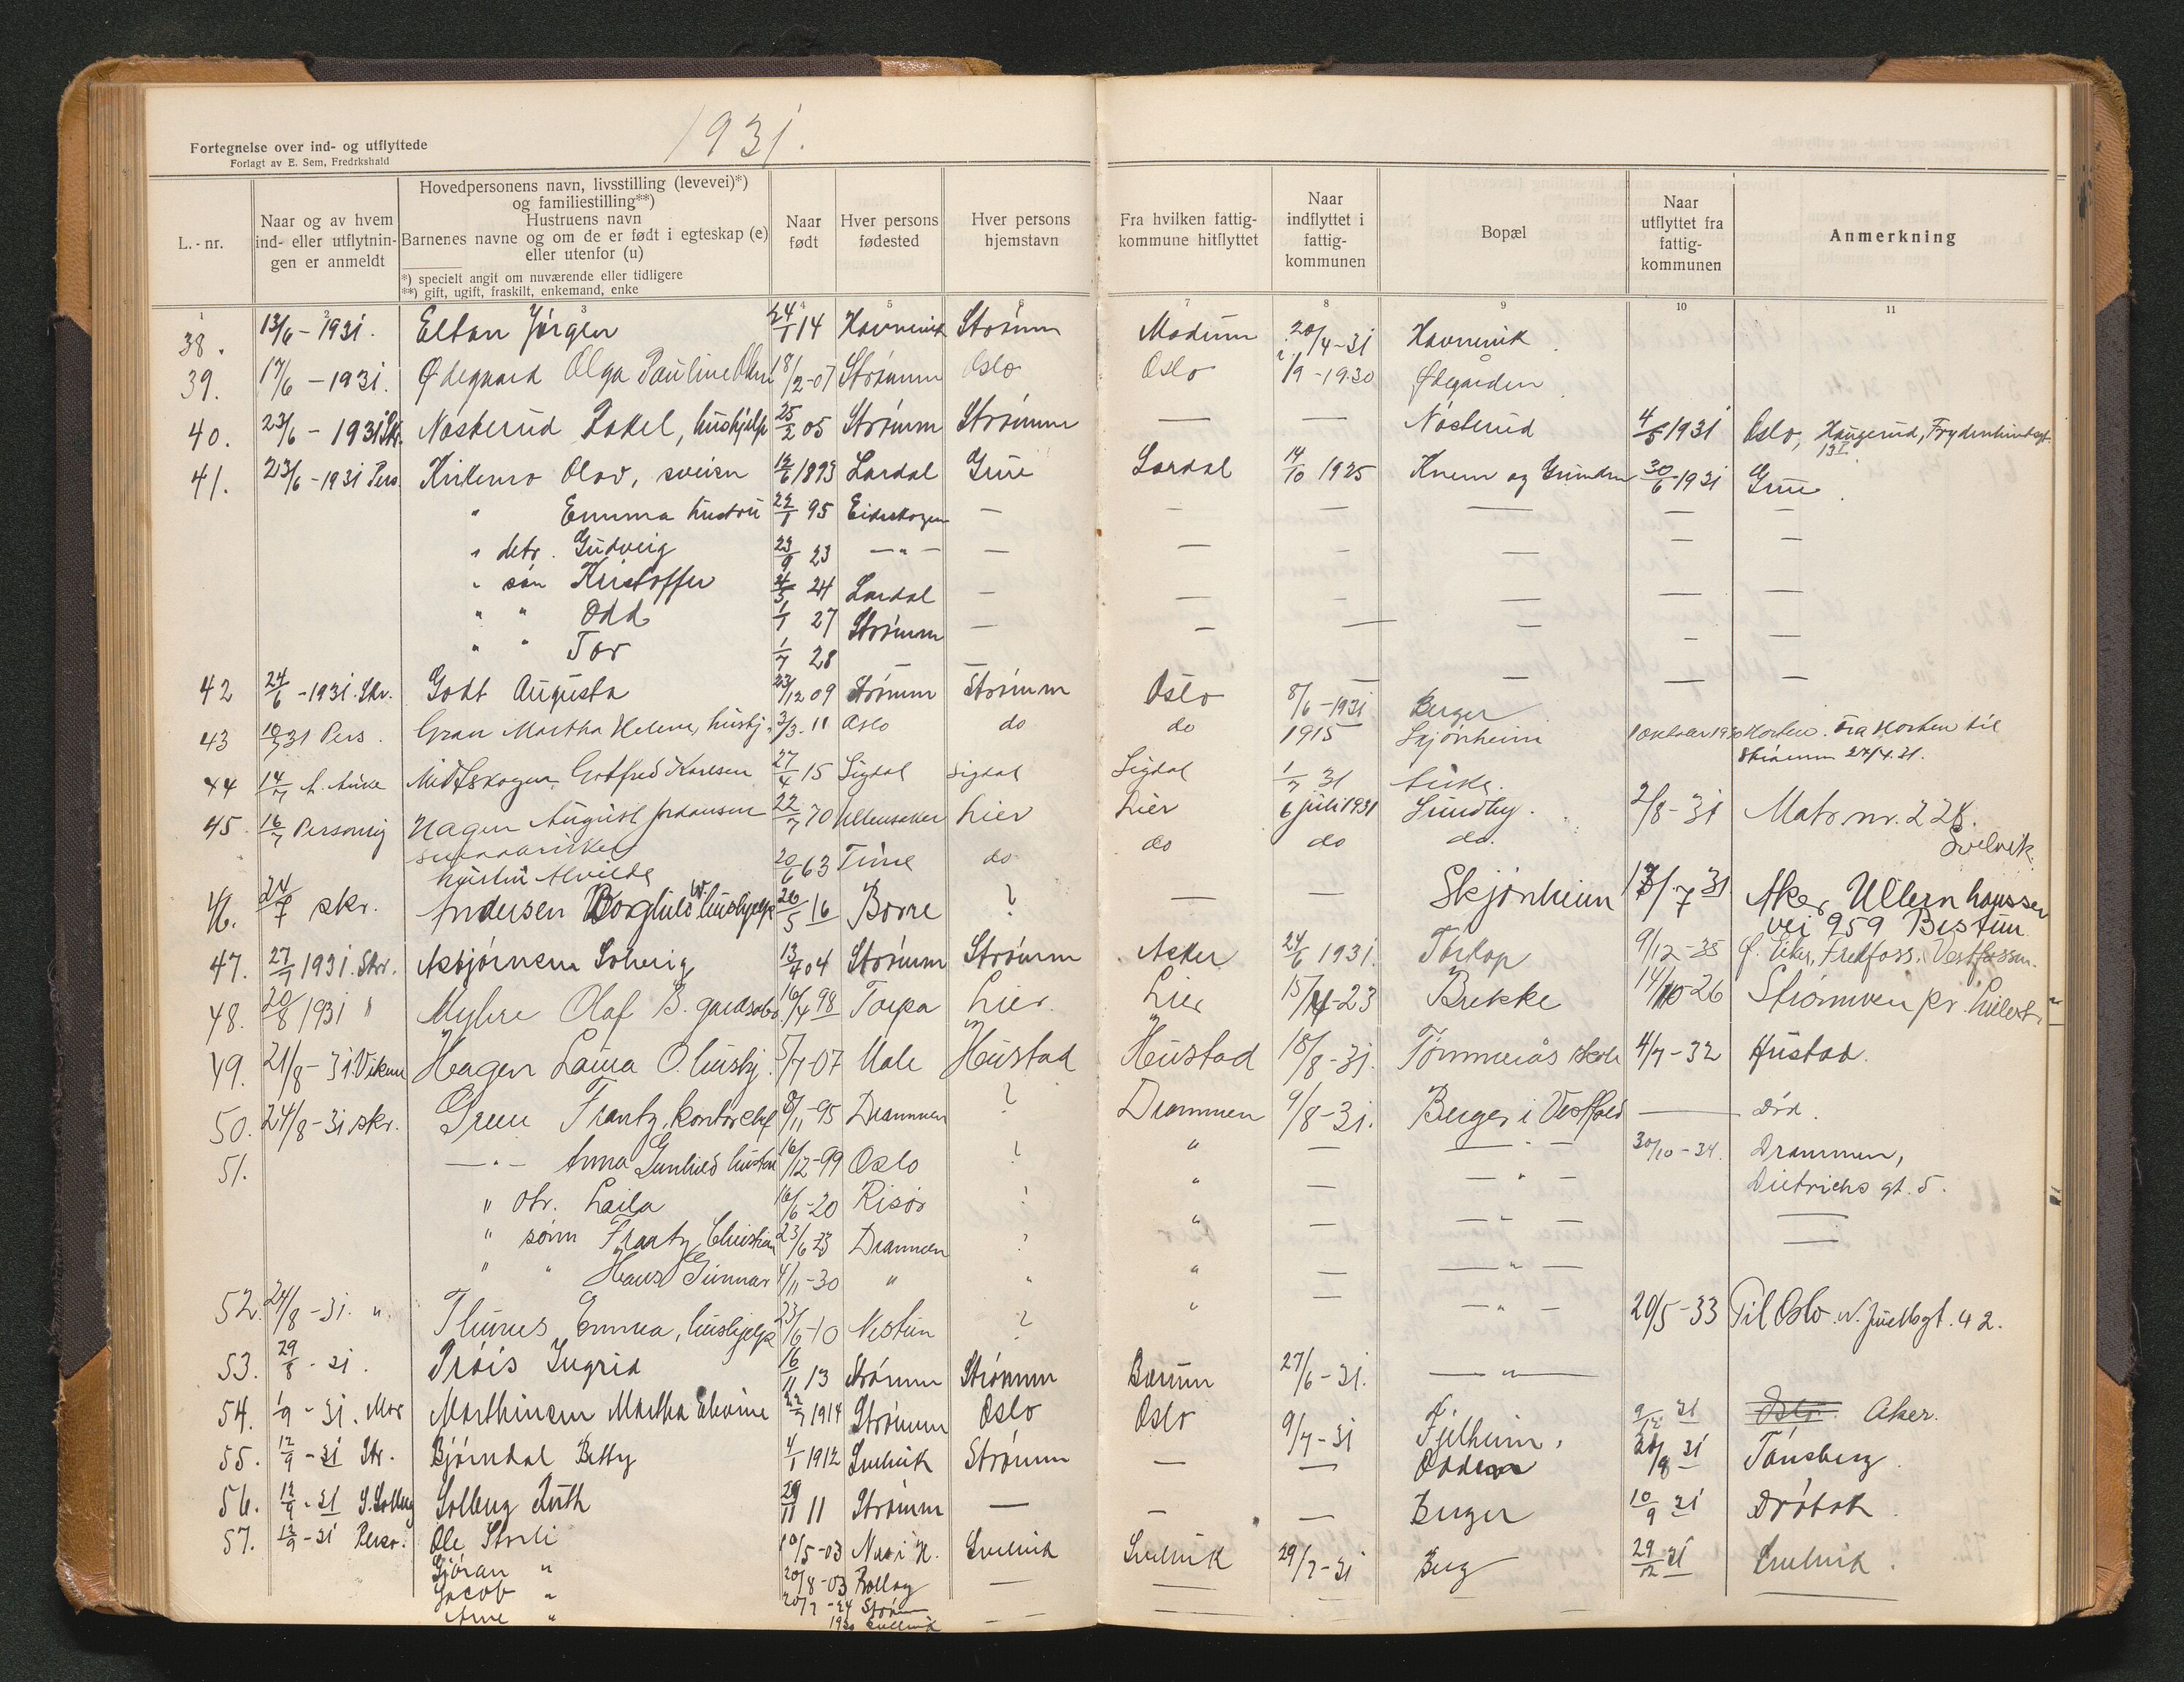 1931.
Fortegnelse over ind- og utflyttede
Forlagt av E. Sem, Fredrkshald
L.-nr.
Naar og av hvem ind- eller utflytningen er anmeldt
Hovedpersonens navn, livsstilling (levevei)*)
og familiestilling**)
Hustruens navn
Barnenes navne og om de er født i egteskap (e)
eller utenfor (u)
*) specielt angit om nuværende eller tidligere
**) gift, ugift, fraskilt, enkemand, enke
Naar født
Hver persons fødested
Hver persons hjemstavn
Fra hvilken fattigkommune hitflyttet
Naar indflyttet i fattigkommunen
Bopæl
Naar utflyttet fra fattigkommunen
Anmerkning
1 2 3 4 5 6 7 8 9 10 11
38. 13/6 - 1931. Eltan Jørgen 24/1 14 Havnevik Strømm Modum 20/4-31 Havnevik
39. 17/6 - 1931. Ødegaard Olga Pauline 18/2-07 Strømm Oslo Oslo 1/9-1930 Ødegården
40. 23/6 - 1931 Skr. Nøsterud Rakel, hushjelp 25/2 05 Strømm Strømm — — Nøsterud 4/5 1931 Oslo, Haugerud, Frydenlundsgt. 13 I
41. 23/6 - 1931 Pers. Kirkemo Olav, sveiser 12/6 1893 Lardal Grue Lardal 14/10 1925 Knem og Grunden 30/6 1931 Grue.
" Emma hustru 22/1 95 Eidskogen — — — — — —
" datr. Gudveig 23/9 23 — " — — — — — — —
" søn Kristoffer 4/5 24 Lardal — — — — — —
" " Odd 1/1 27 Strømm — — — — — —
" " Tor 1/7 28
42 24/6 - 1931. Skr. Godt Augusta 23/12 09 Strømm Strømm Oslo 8/6-1931 Berger
43 10/7 31 Pers. Gran Martha Helene, hushj. 3/3. 11 Oslo do do 1915 Skjønheim 1 oktober 1930 Horten. Fra Horten til
Strømm 27/4.31.
44 14/7 Midtskogen Gotfred Karlsen 27/4 15 Sigdal Sigdal Sigdal 1/7 31
45. 16/7 Personlig Hagen August Johansen 22/7 70 Ullensaker Lier Lier 6 juli 1931 Sundby. 2/8-31 Matr nr. 228.
Svelvik.
hustru Alvilde 20/6 63 Time do do do do.
46. 24/7 skr. Andersen Borghild W. hushjelp 26/5 16 Borre ? — — Skjønheim 13/7 31 Aker, Ullern
vei 959 Bestun
47. 27/7 1931. Skr. Asbjørnsen Solveig 13/4 04 Strømm Strømm Asker 24/6 1931. Torkop 9/12-35 Ø. Eiker, Fredfoss, Vestfossen.
48. 20/8 1931 " Myhre Olaf B. 16/4 98 Torpa Lier. Lier 15/4-23 Brekke 14/10-26
49. 21/8-31. Hagen Laura O. hushj. 5/7-07 Male Hustad Hustad 18/8-31. Tømmerås skole 4/7-32 Hustad.
50. 24/8-31 skr. Green Frantz, kontorchef 8/11-95 Drammen ? Drammen 9/8-31. Berger i Vestfold — død.
51. — " — Anna Gunhild hustru 16/12-99 Oslo ? " — — " — 30/10-34. Drammen,
Dietrichs gt. 5.
" dtr. Laila 16/6-20 Risør ? " — — " —
" sønn Frantz Christian 23/6-23 Drammen ? " — — " — —
" " Hans Gunnar 4/11-30 " " " — — " — —
52. 24/8-31. " Thunes Emma, hushjelp 23/6-10 Nestun ? " — — " — 20/5-33 Til Oslo. N. Juelsgt. 42.
53. 29/8-31. Prøis Ingrid 16/11 13 Strømm Strømm Bærum 27/6-31. — " —
54. 1/9-31. Mor Marthinsen Martha Elvine 22/7 1914 Strømm Oslo Oslo 9/7-31 Fjelheim. 9/12 31 Oslo. Aker.
55. 12/9-31 Skr. Bjørndal Betty 4/1 1912 Svelvik Strømm — — Odden 20/8 31 Tønsberg.
56. 12/9-31 S. Solberg Solberg Ruth 29/11 11 Strømm — — — Berger 10/9 31 Drøbak.
57. 12/9-31 Perso. Ole Storli 10/5-03 Nes i H. Svelvik Svelvik 29/7-31 Berg 29/12 31 Svelvik.
Gjøran " 20/8-03 Rollag — — — —
Jacob " 20/7-24 Strøm
Arne " 1930 Svelvik — — — —